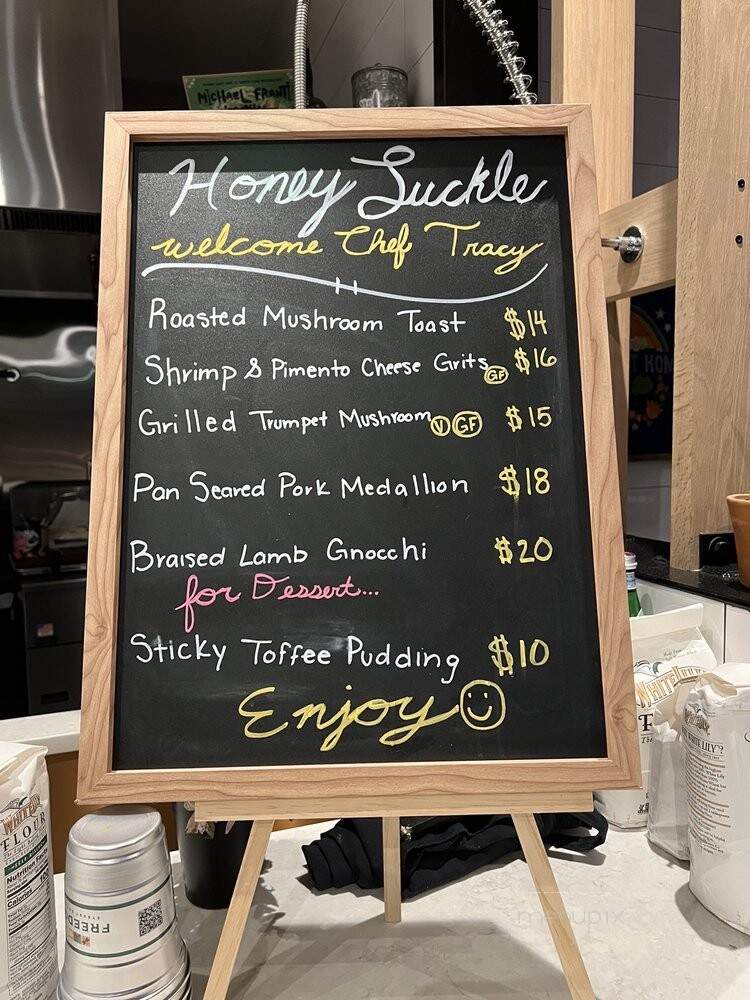 MICHAEL FRANTI
Honey Suckle
welcome Chef Tracy
Roasted Mushroom Toast $14
Shrimp & Pimento Cheese Grits GF $16
Grilled Trumpet Mushroom V GF $15
Pan Seared Pork Medallion $18
Braised Lamb Gnocchi $20
for Dessert...
Sticky Toffee Pudding $10
Enjoy
WHITE LILY
WHITE LILY
FLOUR
Nutrition Facts
Calories
FREED
menupix